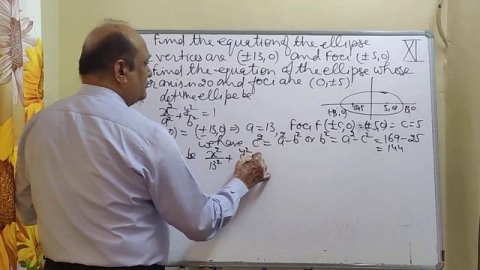 Find the equation of the ellipse
vertices are (±13,0) and foci (±5,0)
Find the equation of the ellipse whose
axis is 20 and foci are (0,±5)
let the ellipse be
x²/a² + y²/b² = 1
0) = (±13,0) ⇒ a = 13, Foci f(±c,0) = (±5,0) ⇒ c = 5
we have c² = a² - b² or b² = a² - c² = 169 - 25
= 144
be x²/13² + y²
XI